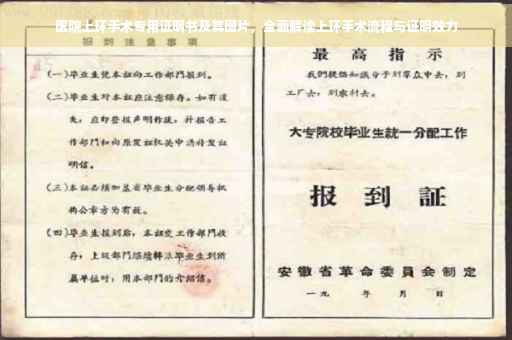 医院上环手术专用证明书及其图片，全面解读上环手术流程与证明效力
报到注意事项
(一)毕业生凭本证向工作部门报到。
(二)毕业生对本证应注意保存。如有遗
失，应即登报声明作废，并报告工
作部门和向原发证机关申请补发证
明信。
(三)本证必须加盖省毕业生分配领导机
构公章方为有效。
(四)毕业生报到后，本证交工作部门收
存；上级部门继续转派毕业生到所
属单位时，用本部门的介绍信。
最高指示
我们提倡知识分子到羣众中去，到
工厂去，到农村去。
大专院校毕业生統一分配工作
报到証
安徽省革命委員会制定
一九 年 月 日